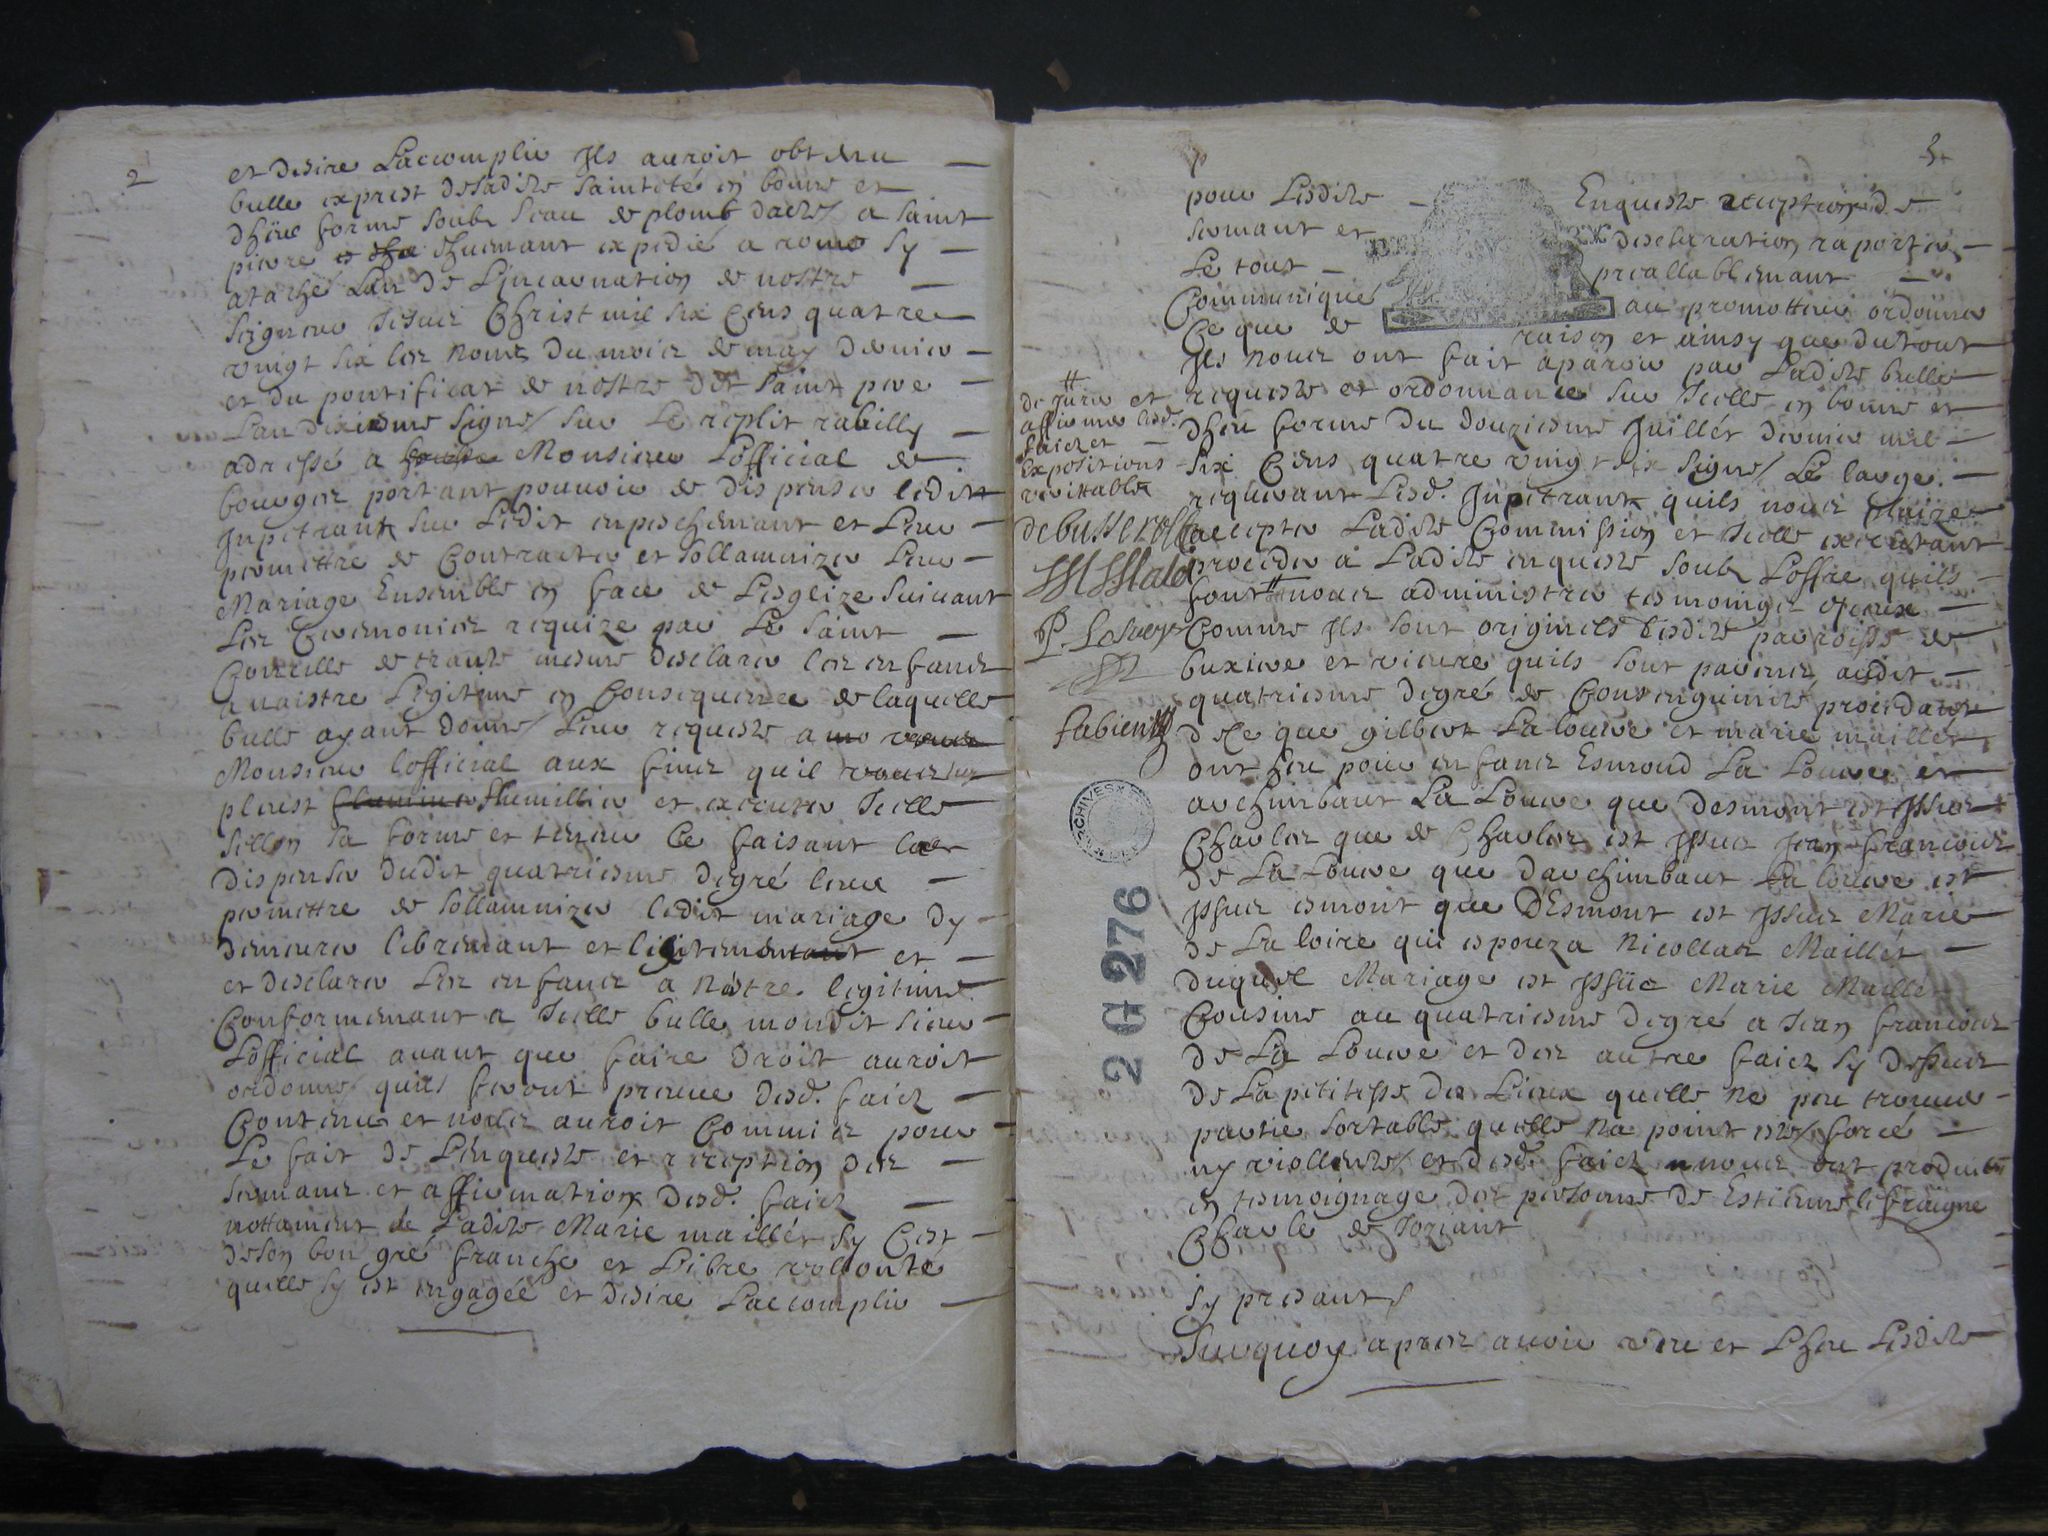 2
et desire Laccomplir Ils auroit obtenu
bulle exprest de sadite sainteté en bonne et
dheue forme soubz seau de plomb dacte a saint
pierre et
atache Lan de Lincarnation de nostre
seigneur Jesus Christ mil six Cens quatre
vingt six les nones du mois de may dernier
et du pontificat de nostre dit saint pere
Lan dixiesme signe sur Le replit rabilly
adressé a Monsieur Lofficial de
bourges portant pouvoir de dispenser lesdits
Inpetrants sur Ledit enpeschemant et Leur
permettre de Contracter et sollamnizer Leur
Mariage Ensemble en face de Lesglize suivant
Les Ceremonies requize par Le saint
Concille de trante mesme desclarer les enfans
a naistre Legitime en Consequence de laquelle
bulle ayant donne Leur requeste a
Monsieur lofficial aux fines quil
pleust fhumillier et executer Icelle
sellon sa forme et teneur Ce faisant les
dispenser dudit quatriesme degré leur
permettre de sollamnizer ledit mariage dy
demeurer libremant et et
et desclarer Les enfans a naistre legitime
Conformemant a Icelle bulle mondit sieur
Lofficial avant que faire droit auroit
ordonne quils feront preuve desd. faicz
Contenu et nous auroit Commies pour
Le fait de Lenqueste et reception des
sermans et affirmation desd. faicz
nottament de Ladite Marie maillet sy Cest
de son bon gré franche et Libre vollonté
quelle sy est engagée et desire Laccomplir
3
pour Lesdite
sermant et
Le tout
Communiqué
Ce que de
Enqueste reception de
desclaration raporter
preallablemant
au promotteur ordonner
raison et ainsy que du tout
Ils nous ont fait aparoir par Ladite bulle
requeste et ordonnance sur Icelle en bonne et
dheu forme du douziesme Juillét dernier mil
six Cens quatre vingt six signe Le large.
requerant Lesd. Inpetrants quils nous plaize
accepter Ladite Commission et Icelle executant
proceder a Ladite enqueste soubz Loffre quils
font # nous administrer tesmoinges
Comme Ils sont originels desdite parroisse de
buxiere et vieure quils sont parens audit
quatriesme degré de Consenguinité procedant
de Ce que gilbert La louere et marie maillet
ont heu pour enfans Esmond La Louere et
archimbaut La Louere que desmont est Issus
Charles que de Charles est Issus Jean francois
de La Louere que darchimbaut La louere est
Issus esmont que dEsmont est Issus Marie
de La loire qui espouza Nicollas Maillét
duquel Mariage est Issüe Marie Maillet
Cousine au quatriesme degré a Jean francois
de La Louere et des autre faicz sy dessus
de La petitesse des Lieux quelle ne peu trouver
partie sortable quelle na point este forcé
ny viollente et desd. faicz nous ont produits
en tesmoignage des personne de Estienne lefraigne
Charle de Soriant
sy presants
surquoy apres avoir veu et Lheu Lesdite
#
de Jurer et
affirmer lesd.
faicz et
Expositions
veritable
debusserolle
fabien
ARCHIVES
2 G 276